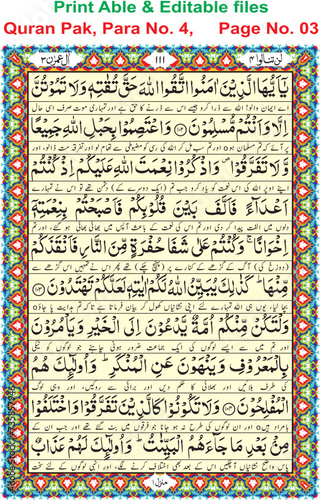 Print Able & Editable files
Quran Pak, Para No. 4, Page No. 03
لن تنالوا ۴ ۱۱۱ اٰل عمرٰن ۳
يٰٓاَيُّهَا الَّذِيْنَ اٰمَنُوا اتَّقُوا اللّٰهَ حَقَّ تُقٰتِهٖ وَلَا تَمُوْتُنَّ
اے ایمان والو! اللہ سے ڈرا کرو جیسے اس سے ڈرنے کا حق ہے اور تمہاری موت صرف اسی حال
اِلَّا وَاَنْتُمْ مُّسْلِمُوْنَ ﴿۱۰۲﴾ وَاعْتَصِمُوْا بِحَبْلِ اللّٰهِ جَمِيْعًا
پر آئے کہ تم مسلمان ہو o اور تم سب مل کر اللہ کی رسی کو مضبوطی سے تھام لو اور تفرقہ مت ڈالو، اور
وَّلَا تَفَرَّقُوْا ۪ وَاذْكُرُوْا نِعْمَتَ اللّٰهِ عَلَيْكُمْ اِذْ كُنْتُمْ
اپنے اوپر اللہ کی اس نعمت کو یاد کرو جب تم (ایک دوسرے کے) دشمن تھے تو اس نے تمہارے
اَعْدَآءً فَاَلَّفَ بَيْنَ قُلُوْبِكُمْ فَاَصْبَحْتُمْ بِنِعْمَتِهٖٓ
دلوں میں الفت پیدا کر دی اور تم اس کی نعمت کے باعث آپس میں بھائی بھائی ہو گئے، اور تم
اِخْوَانًا ۚ وَكُنْتُمْ عَلٰى شَفَا حُفْرَةٍ مِّنَ النَّارِ فَاَنْقَذَكُمْ
(دوزخ کی) آگ کے گڑھے کے کنارے پر (پہنچ چکے) تھے پھر اس نے تمہیں اس گڑھے سے
مِّنْهَا ؕ كَذٰلِكَ يُبَيِّنُ اللّٰهُ لَكُمْ اٰيٰتِهٖ لَعَلَّكُمْ تَهْتَدُوْنَ ﴿۱۰۳﴾
بچا لیا، یوں ہی اللہ تمہارے لئے اپنی نشانیاں کھول کر بیان فرماتا ہے تاکہ تم ہدایت پا جاؤ o
وَلْتَكُنْ مِّنْكُمْ اُمَّةٌ يَّدْعُوْنَ اِلَى الْخَيْرِ وَيَاْمُرُوْنَ
اور تم میں سے ایسے لوگوں کی ایک جماعت ضرور ہونی چاہئے جو لوگوں کو نیکی
بِالْمَعْرُوْفِ وَيَنْهَوْنَ عَنِ الْمُنْكَرِ ؕ وَاُولٰٓئِكَ هُمُ
کی طرف بلائیں اور بھلائی کا حکم دیں اور برائی سے روکیں، اور وہی لوگ
الْمُفْلِحُوْنَ ﴿۱۰۴﴾ وَلَا تَكُوْنُوْا كَالَّذِيْنَ تَفَرَّقُوْا وَاخْتَلَفُوْا
بامراد ہیں o اور ان لوگوں کی طرح نہ ہو جانا جو فرقوں میں بٹ گئے تھے اور جب ان کے
مِنْۢ بَعْدِ مَا جَآءَهُمُ الْبَيِّنٰتُ ؕ وَاُولٰٓئِكَ لَهُمْ عَذَابٌ
پاس واضح نشانیاں آ چکیں اس کے بعد بھی اختلاف کرنے لگے، اور انہی لوگوں کے لئے سخت
منزل۱